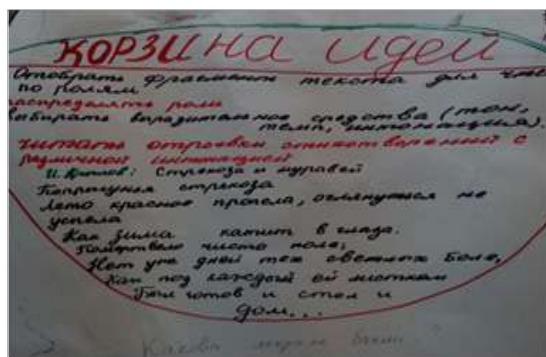 КОРЗИНА ИДЕЙ
Отобрать фрагменты текста для чте
по ролям
распределять роли
выбирать выразительные средства (тон,
темп, интонация).
Читать отрывки стихотворений с
различной интонацией
И. Крылов: Стрекоза и муравей
Попрыгунья стрекоза
Лето красное пропела, оглянуться не
успела
Как зима катит в глаза.
Помертвело чисто поле;
Нет уж дней тех светлых боле,
Как под каждым ей листком
Был готов и стол и
дом...